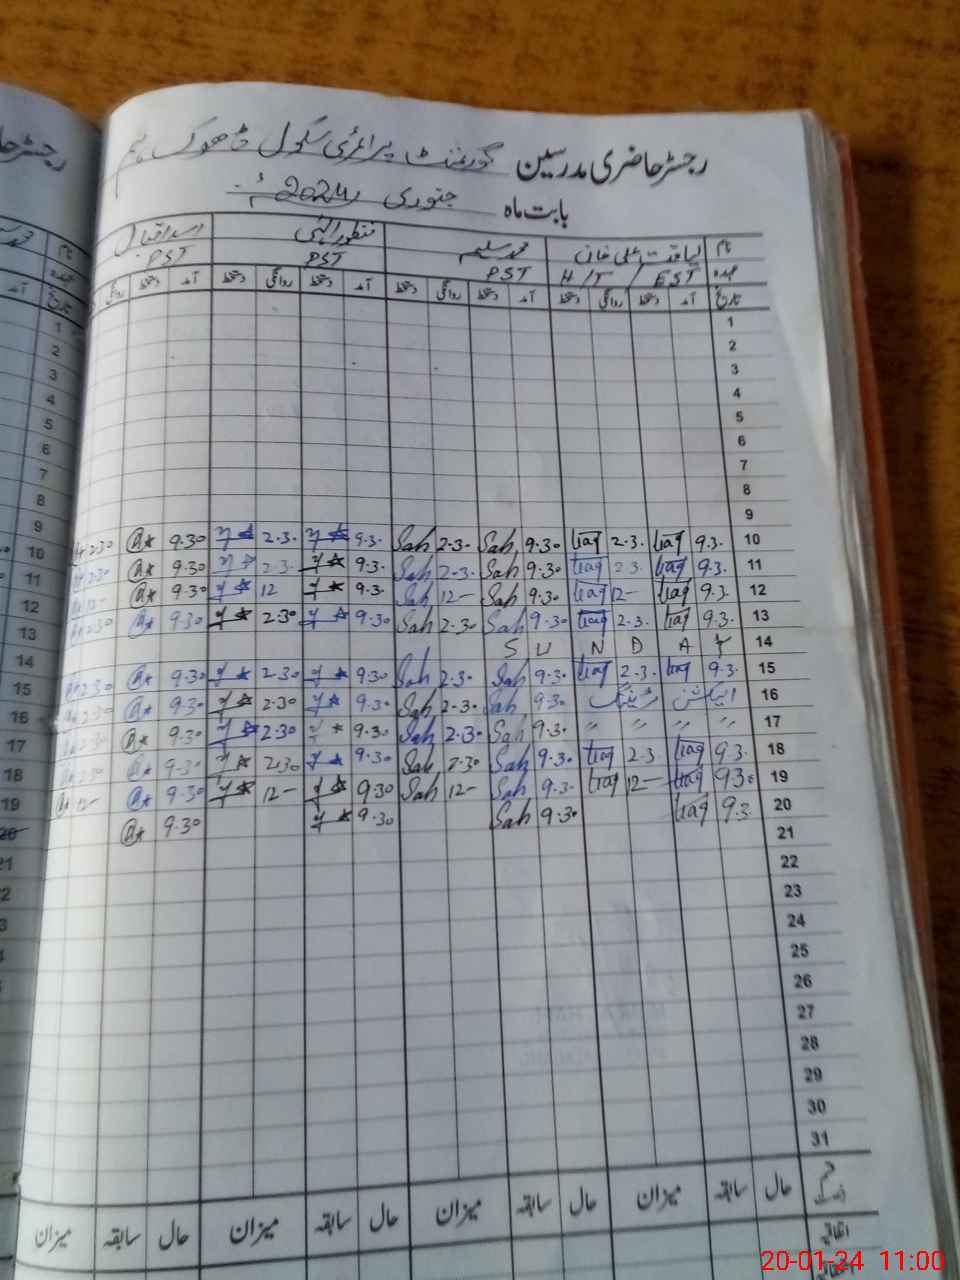 رجسٹر حاضری مدرسین گورنمنٹ پرائمری سکول ڈھوک
بابت ماہ جنوری 2024ء
نام لیاقت علی خان محمد سلیم منظور الہٰی اسد اقبال
عہدہ H/T / EST PST PST PST
تاریخ آمد دستخط روانگی دستخط آمد دستخط روانگی دستخط آمد دستخط روانگی دستخط آمد دستخط روانگی
1
2
3
4
5
6
7
8
9
2.30 9.30 2.3. 9.3. Sah 2.3. Sah 9.30 liaq 2.3. liaq 9.3. 10
2.30 9.30 2.3. 9.3. Sah 2.3. Sah 9.30 liaq 2.3. liaq 9.3. 11
12- 9.30 12 9.3. Sah 12- Sah 9.30 liaq 12- liaq 9.3. 12
2.30 9.30 2.30 9.30 Sah 2.30 Sah 9.30 liaq 2.3. liaq 9.3. 13
S U N D A Y 14
2.30 9.30 2.30 9.30 Sah 2.30 Sah 9.30 liaq 2.3. liaq 9.3. 15
2.30 9.30 2.30 9.30 Sah 2.30 Sah 9.30 الیکشن ٹریننگ 16
2.30 9.30 2.30 9.30 Sah 2.30 Sah 9.30 " " " " 17
2.30 9.30 2.30 9.30 Sah 2.30 Sah 9.30 liaq 2.3. liaq 9.3. 18
12- 9.30 12- 9.30 Sah 12- Sah 9.3. liaq 12- liaq 9.30 19
9.30 9.30 Sah 9.30 liaq 9.3. 20
21
22
23
24
25
26
27
28
29
30
31
حال سابقہ میزان حال سابقہ میزان حال سابقہ میزان حال سابقہ میزان
اتفاقیہ
20-01-24 11:00